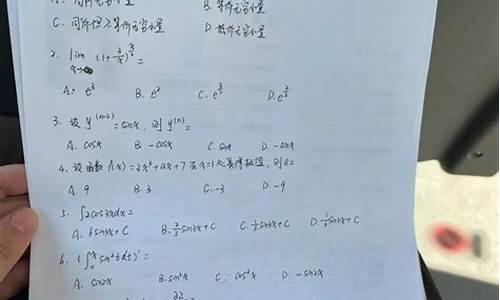 A. 同阶无穷小量 B. 等价无穷小量
C. 同阶但不等价无穷小量 D. 高阶无穷小量
2. lim x→∞ (1+ =
A. e³ B. e² C. e D. e
3. 设 y⁽ⁿ⁻²⁾=sinx, 则 y⁽ⁿ⁾=
A. cosx B. -cosx C. sinx D. -sinx
4. 设函数 f(x)=2x³+ax+7 在x=1处取得极值, 则a=
A. 9 B. 3 C. -3 D. -9
5. ∫2cos3xdx=
A. 6sin3x+C B. ⅔sin3x+C C. ⅓sin3x+C D. sin+C
6. (∫₀ˣ sin²tdt)'=
A. sin2x B. sin²x C. cos²x D. -sin2x